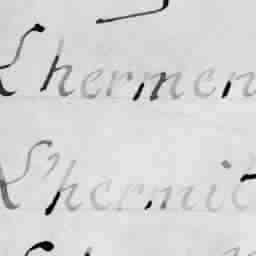 Lhermen
L'hermit